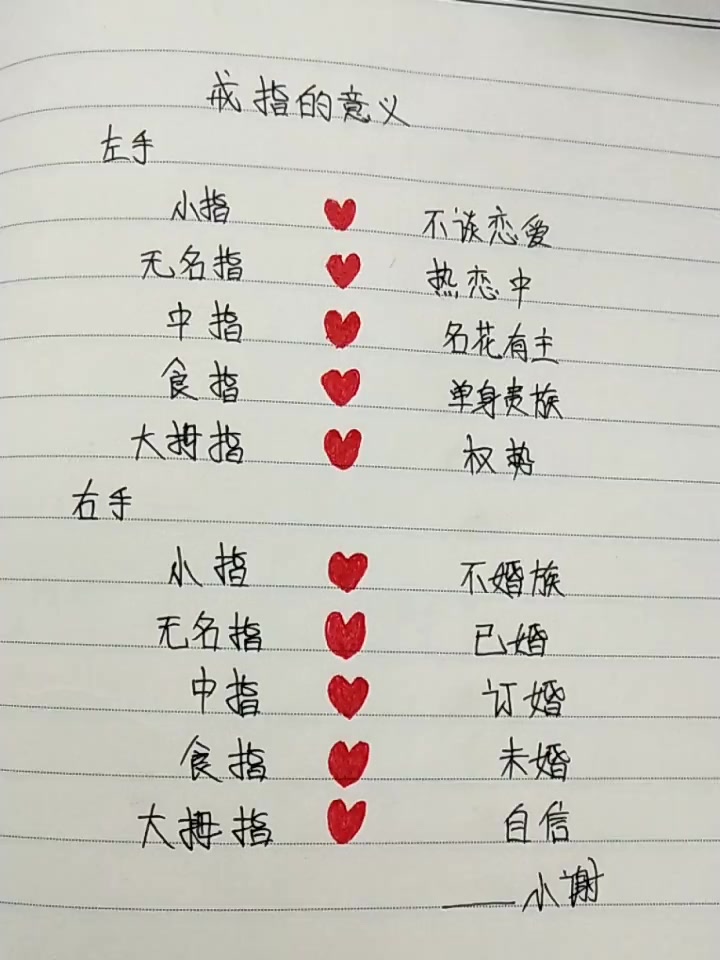 戒指的意义
左手
小指 ❤ 不谈恋爱
无名指 ❤ 热恋中
中指 ❤ 名花有主
食指 ❤ 单身贵族
大拇指 ❤ 权势
右手
小指 ❤ 不婚族
无名指 ❤ 已婚
中指 ❤ 订婚
食指 ❤ 未婚
大拇指 ❤ 自信
——小谢